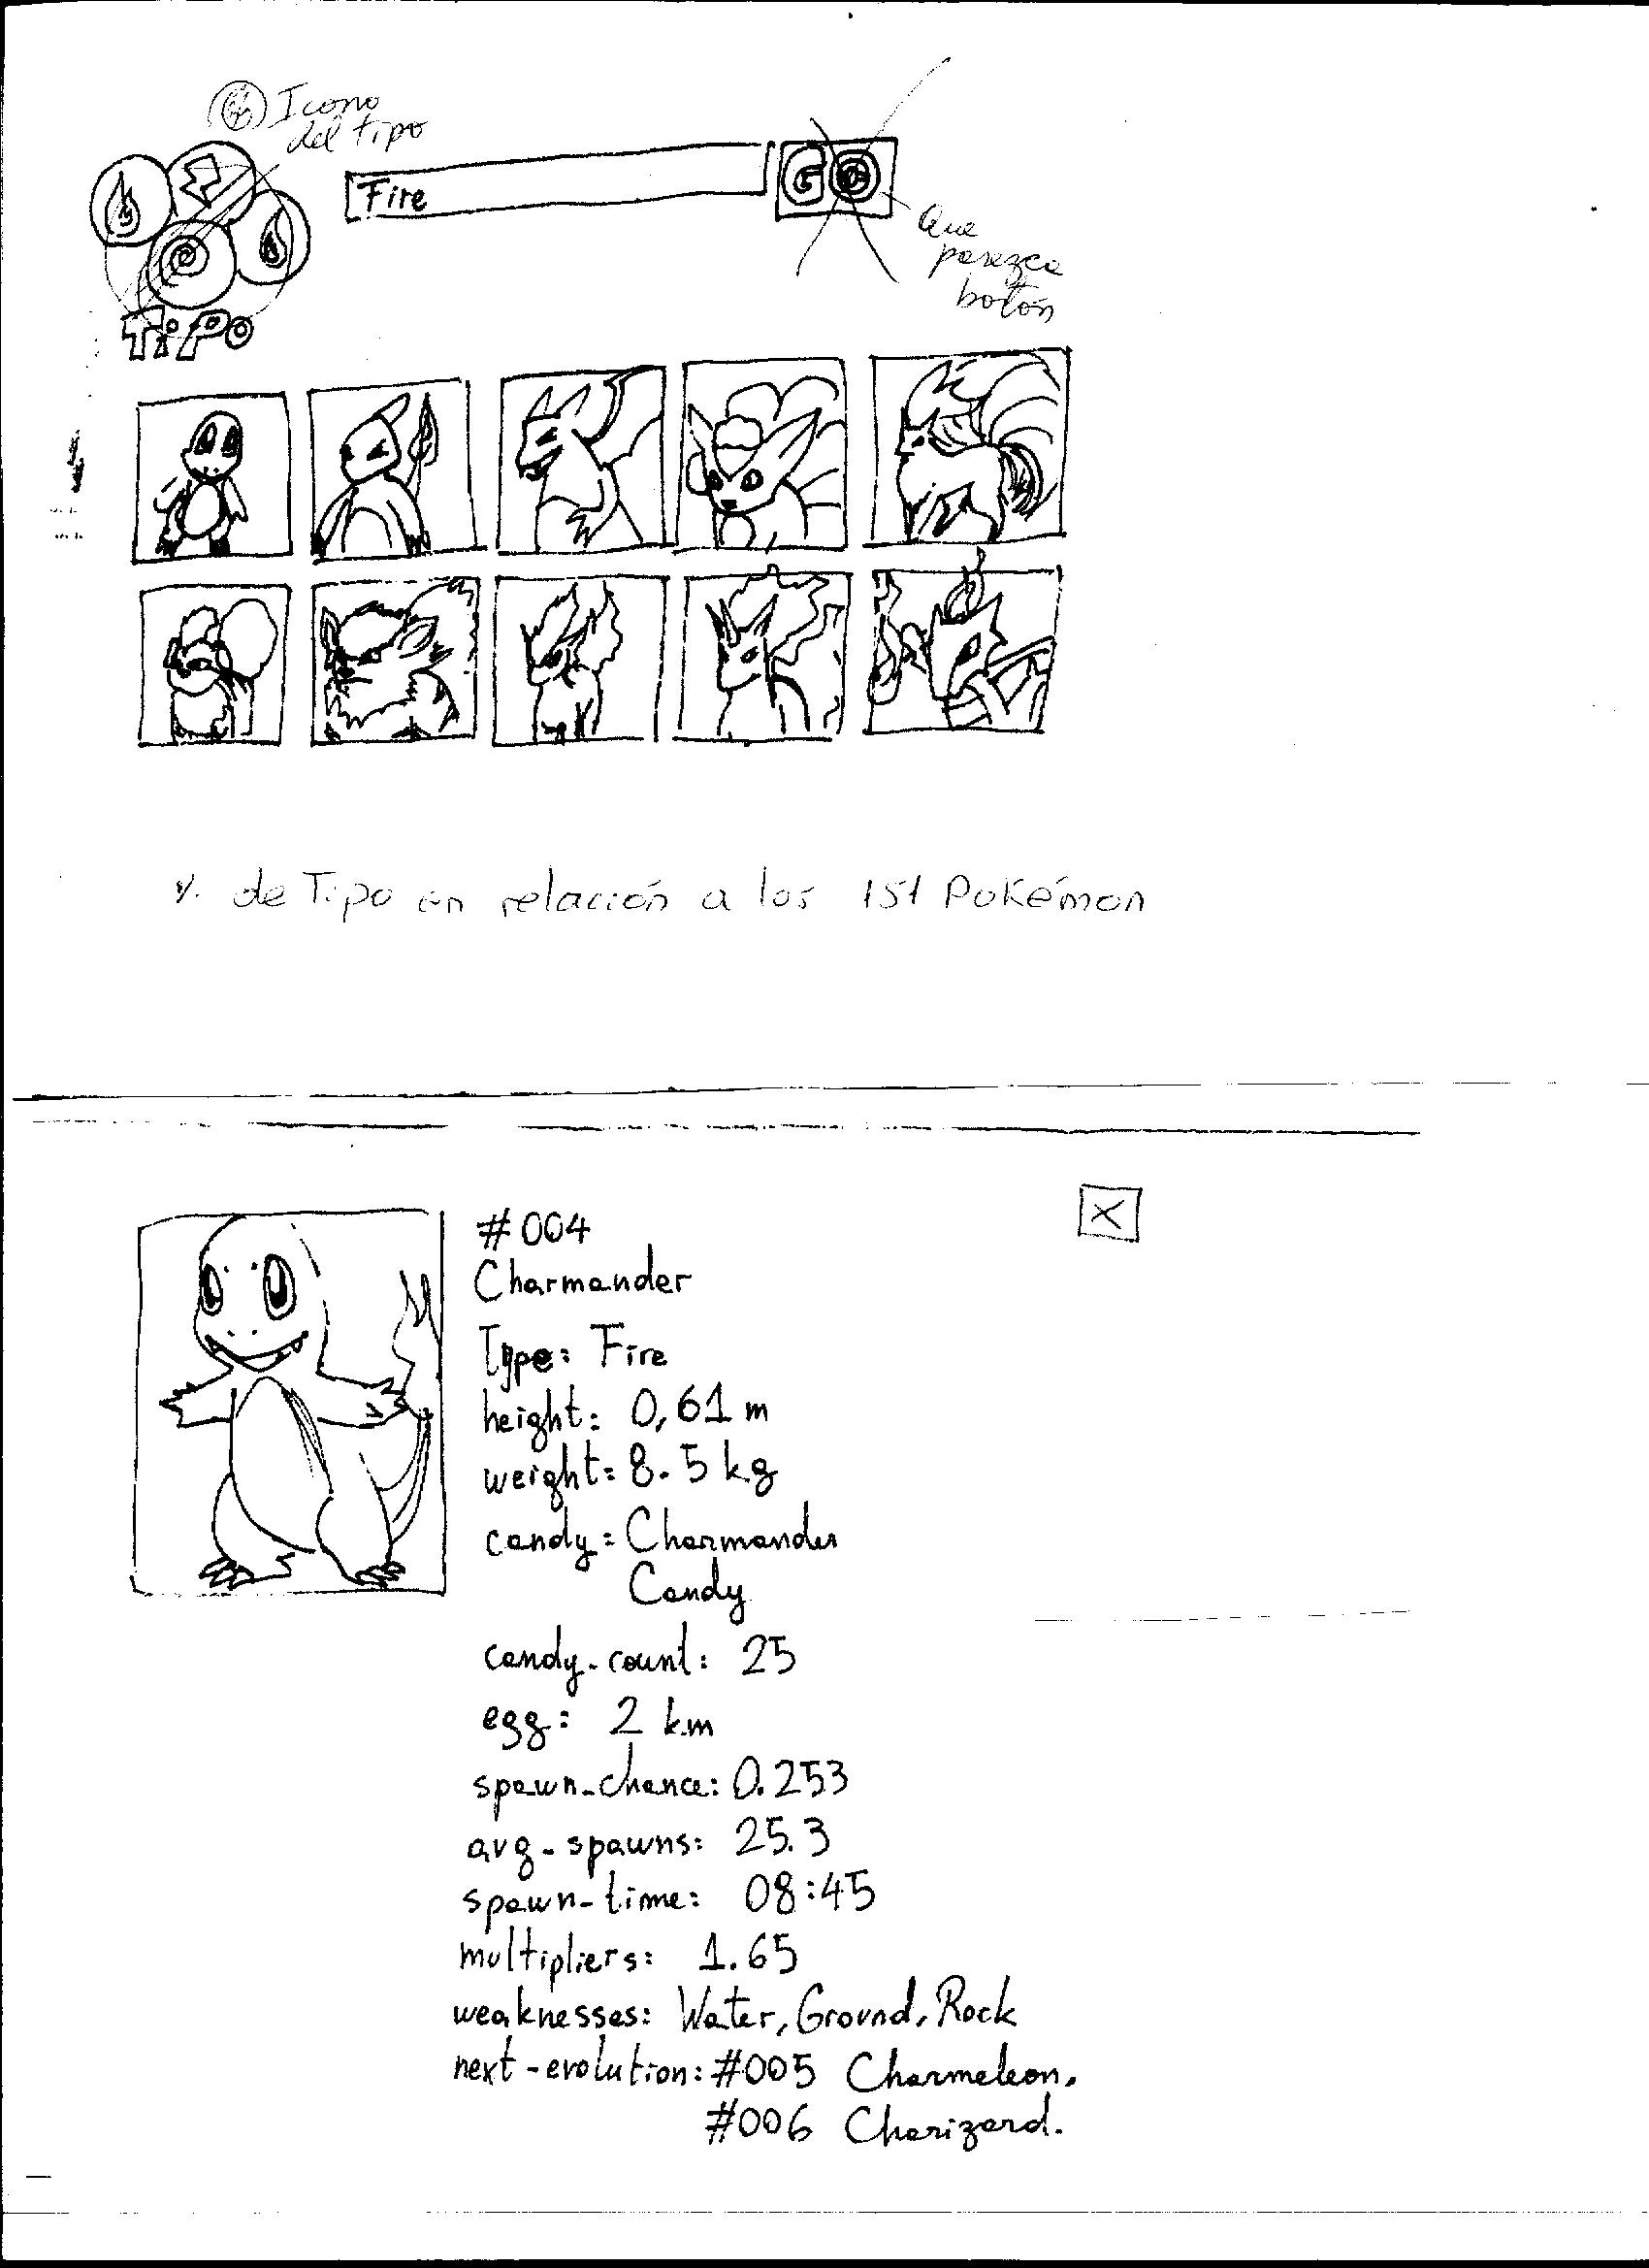 Icono
del tipo
Fire
GO
Que
parezca
botón
TiPo
% de Tipo en relación a los 151 Pokémon
X
#004
Charmander
Type: Fire
height: 0,61 m
weight: 8.5 kg
candy: Charmander
Candy
candy-count: 25
egg: 2 km
spawn-chance: 0.253
avg-spawns: 25.3
spawn-time: 08:45
multipliers: 1.65
weaknesses: Water, Ground, Rock
next-evolution: #005 Charmeleon,
#006 Charizard.